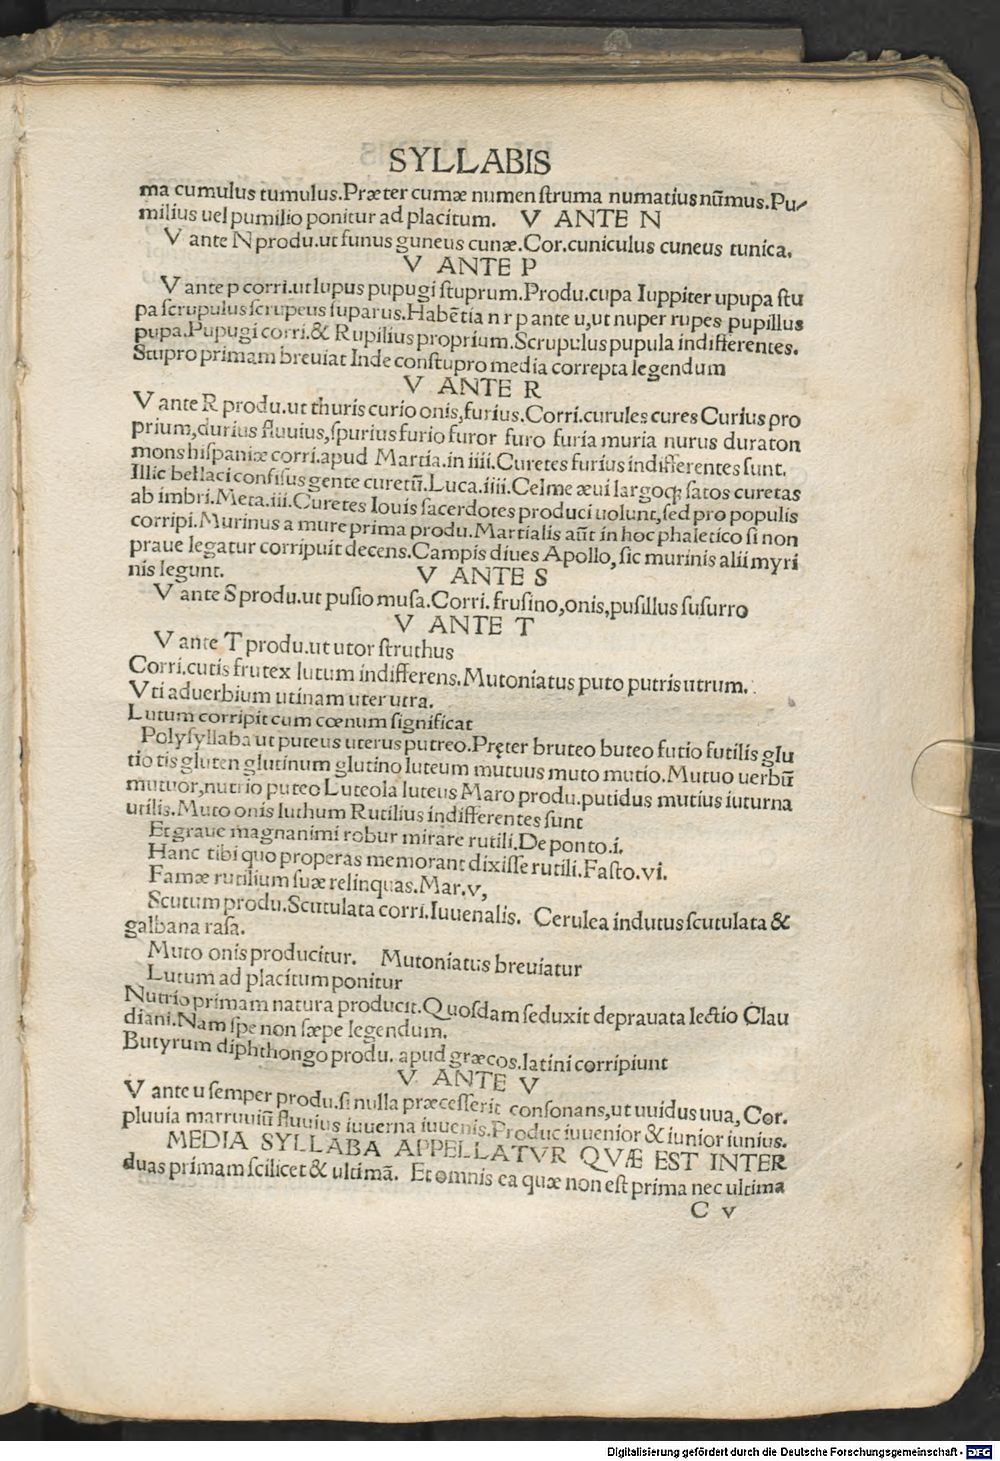 SYLLABIS
ma cumulus tumulus.Præter cumæ numen ſtruma numatius nūmus.Pu⸗
milius uel pumilio ponitur ad placitum. V ANTE N
V ante N produ.ut funus guneus cunæ.Cor.cuniculus cuneus tunica.
V ANTE P
V ante p corri.ut lupus pupugi ſtuprum.Produ.cupa Iuppiter upupa ſtu
pa ſcrupulus ſcrupeus ſuparus.Habētia n r p ante u,ut nuper rupes pupillus
pupa.Pupugi corri.& Rupilius proprium.Scrupulus pupula indifferentes.
Stupro primam breuiat Inde conſtupro media correpta legendum
V ANTE R
V ante R produ.ut thuris curio onis,furius.Corri.curules cures Curius pro
prium,durius fluuius,ſpurius furio furor furo furia muria nurus duraton
mons hiſpaniæ corri.apud Martia.in iiii.Curetes furius indifferentes ſunt.
Illic bellaci confiſus gente curetū.Luca.iiii.Celme æui largoqꝫ ſatos curetas
ab imbri.Meta.iii.Curetes Iouis ſacerdotes produci uolunt,ſed pro populis
corripi.Murinus a mure prima produ.Martialis aūt in hoc phaletico ſi non
praue legatur corripuit decens.Campis diues Apollo, ſic murinis alii myri
nis legunt. V ANTE S
V ante S produ.ut puſio muſa.Corri.fruſino,onis,puſillus ſuſurro
V ANTE T
V ante T produ.ut utor ſtruthus
Corri.cutis frutex lutum indifferens.Mutoniatus puto putris utrum.
Vti aduerbium utinam uter utra.
Lutum corripit cum cœnum ſignificat
Polyſyllaba ut puteus uterus putreo.Pręter bruteo buteo futio futilis glu
tio tis gluten glutinum glutino luteum mutuus muto mutio.Mutuo uerbū
mutuor,nutrio puteo Luteola luteus Maro produ.putidus mutius iuturna
utilis.Muto onis luthum Rutilius indifferentes ſunt
Et graue magnanimi robur mirare rutili.De ponto.i.
Hanc tibi quo properas memorant dixiſſe rutili.Faſto.vi.
Famæ rutilium ſuæ relinquas.Mar.v,
Scutum produ.Scutulata corri.Iuuenalis. Cerulea indutus ſcutulata &
galbana raſa.
Muto onis producitur. Mutoniatus breuiatur
Lutum ad placitum ponitur
Nutrio primam natura producit.Quoſdam ſeduxit deprauata lectio Clau
diani.Nam ſpe non ſæpe legendum.
Butyrum diphthongo produ. apud græcos.latini corripiunt
V ANTE V
V ante u ſemper produ.ſi nulla præceſſerit conſonans,ut uuidus uua, Cor.
pluuia marruuiū fluuius iuuerna iuuenis.Produc iuuenior & iunior iunius.
MEDIA SYLLABA APPELLATVR QVÆ EST INTER
duas primam ſcilicet & ultimā. Et omnis ea quæ non eſt prima nec ultima
C v
Digitalisierung gefördert durch die Deutsche Forschungsgemeinschaft - DFG